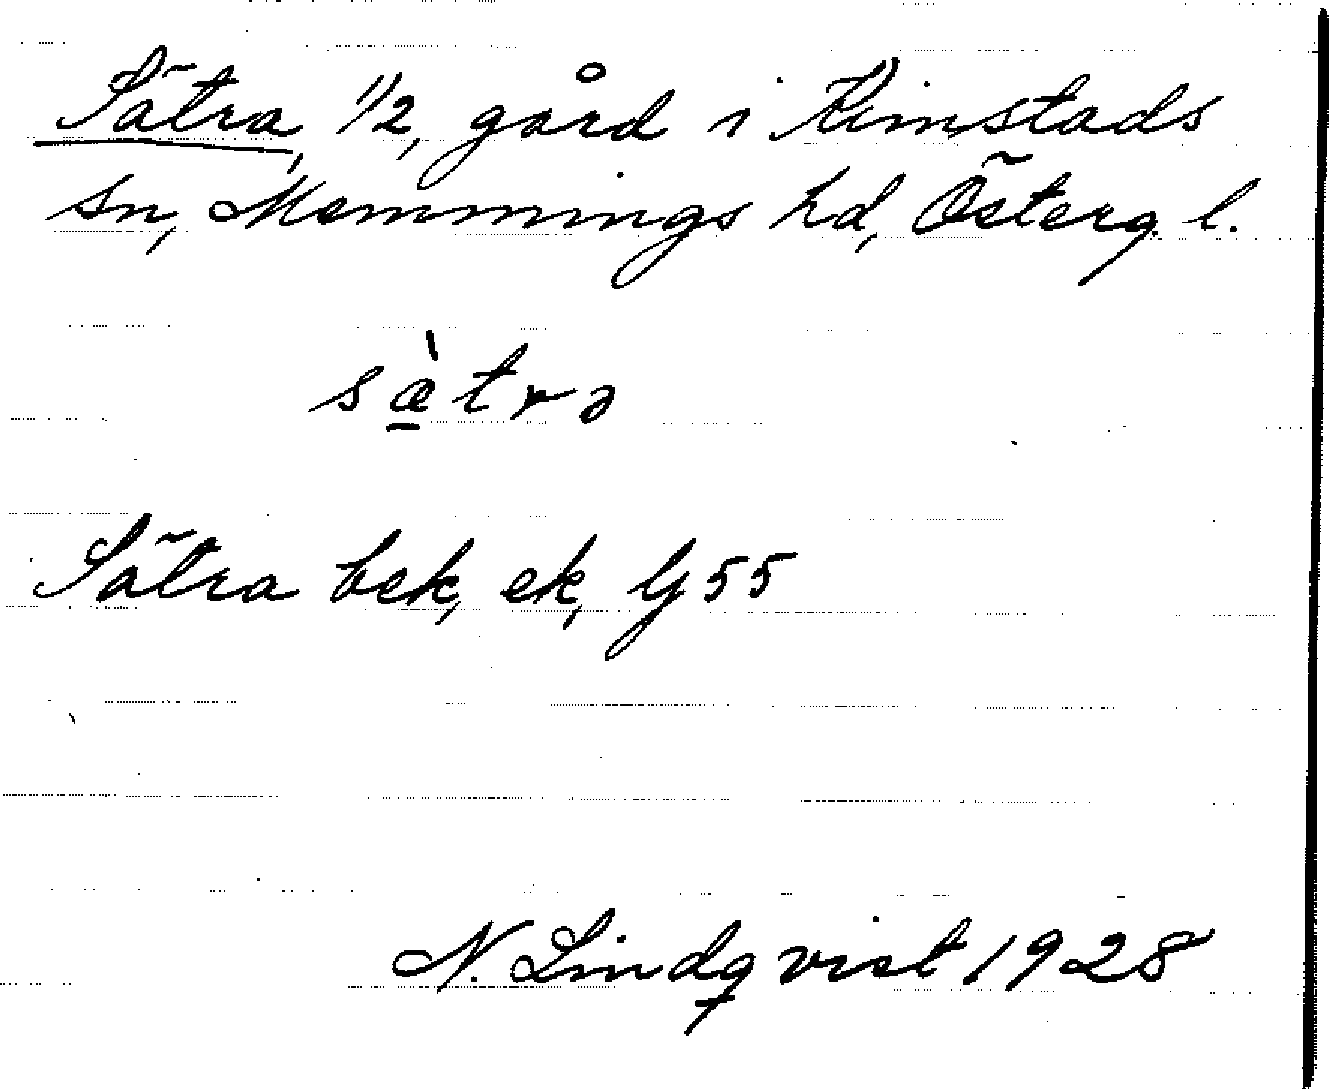 Sätra, 1/2, gård i Kimstads
sn, Memmings hd, Österg. l.
sæ̀trə
Sätra bek, ek, Ij 55
N. Lindqvist 1928